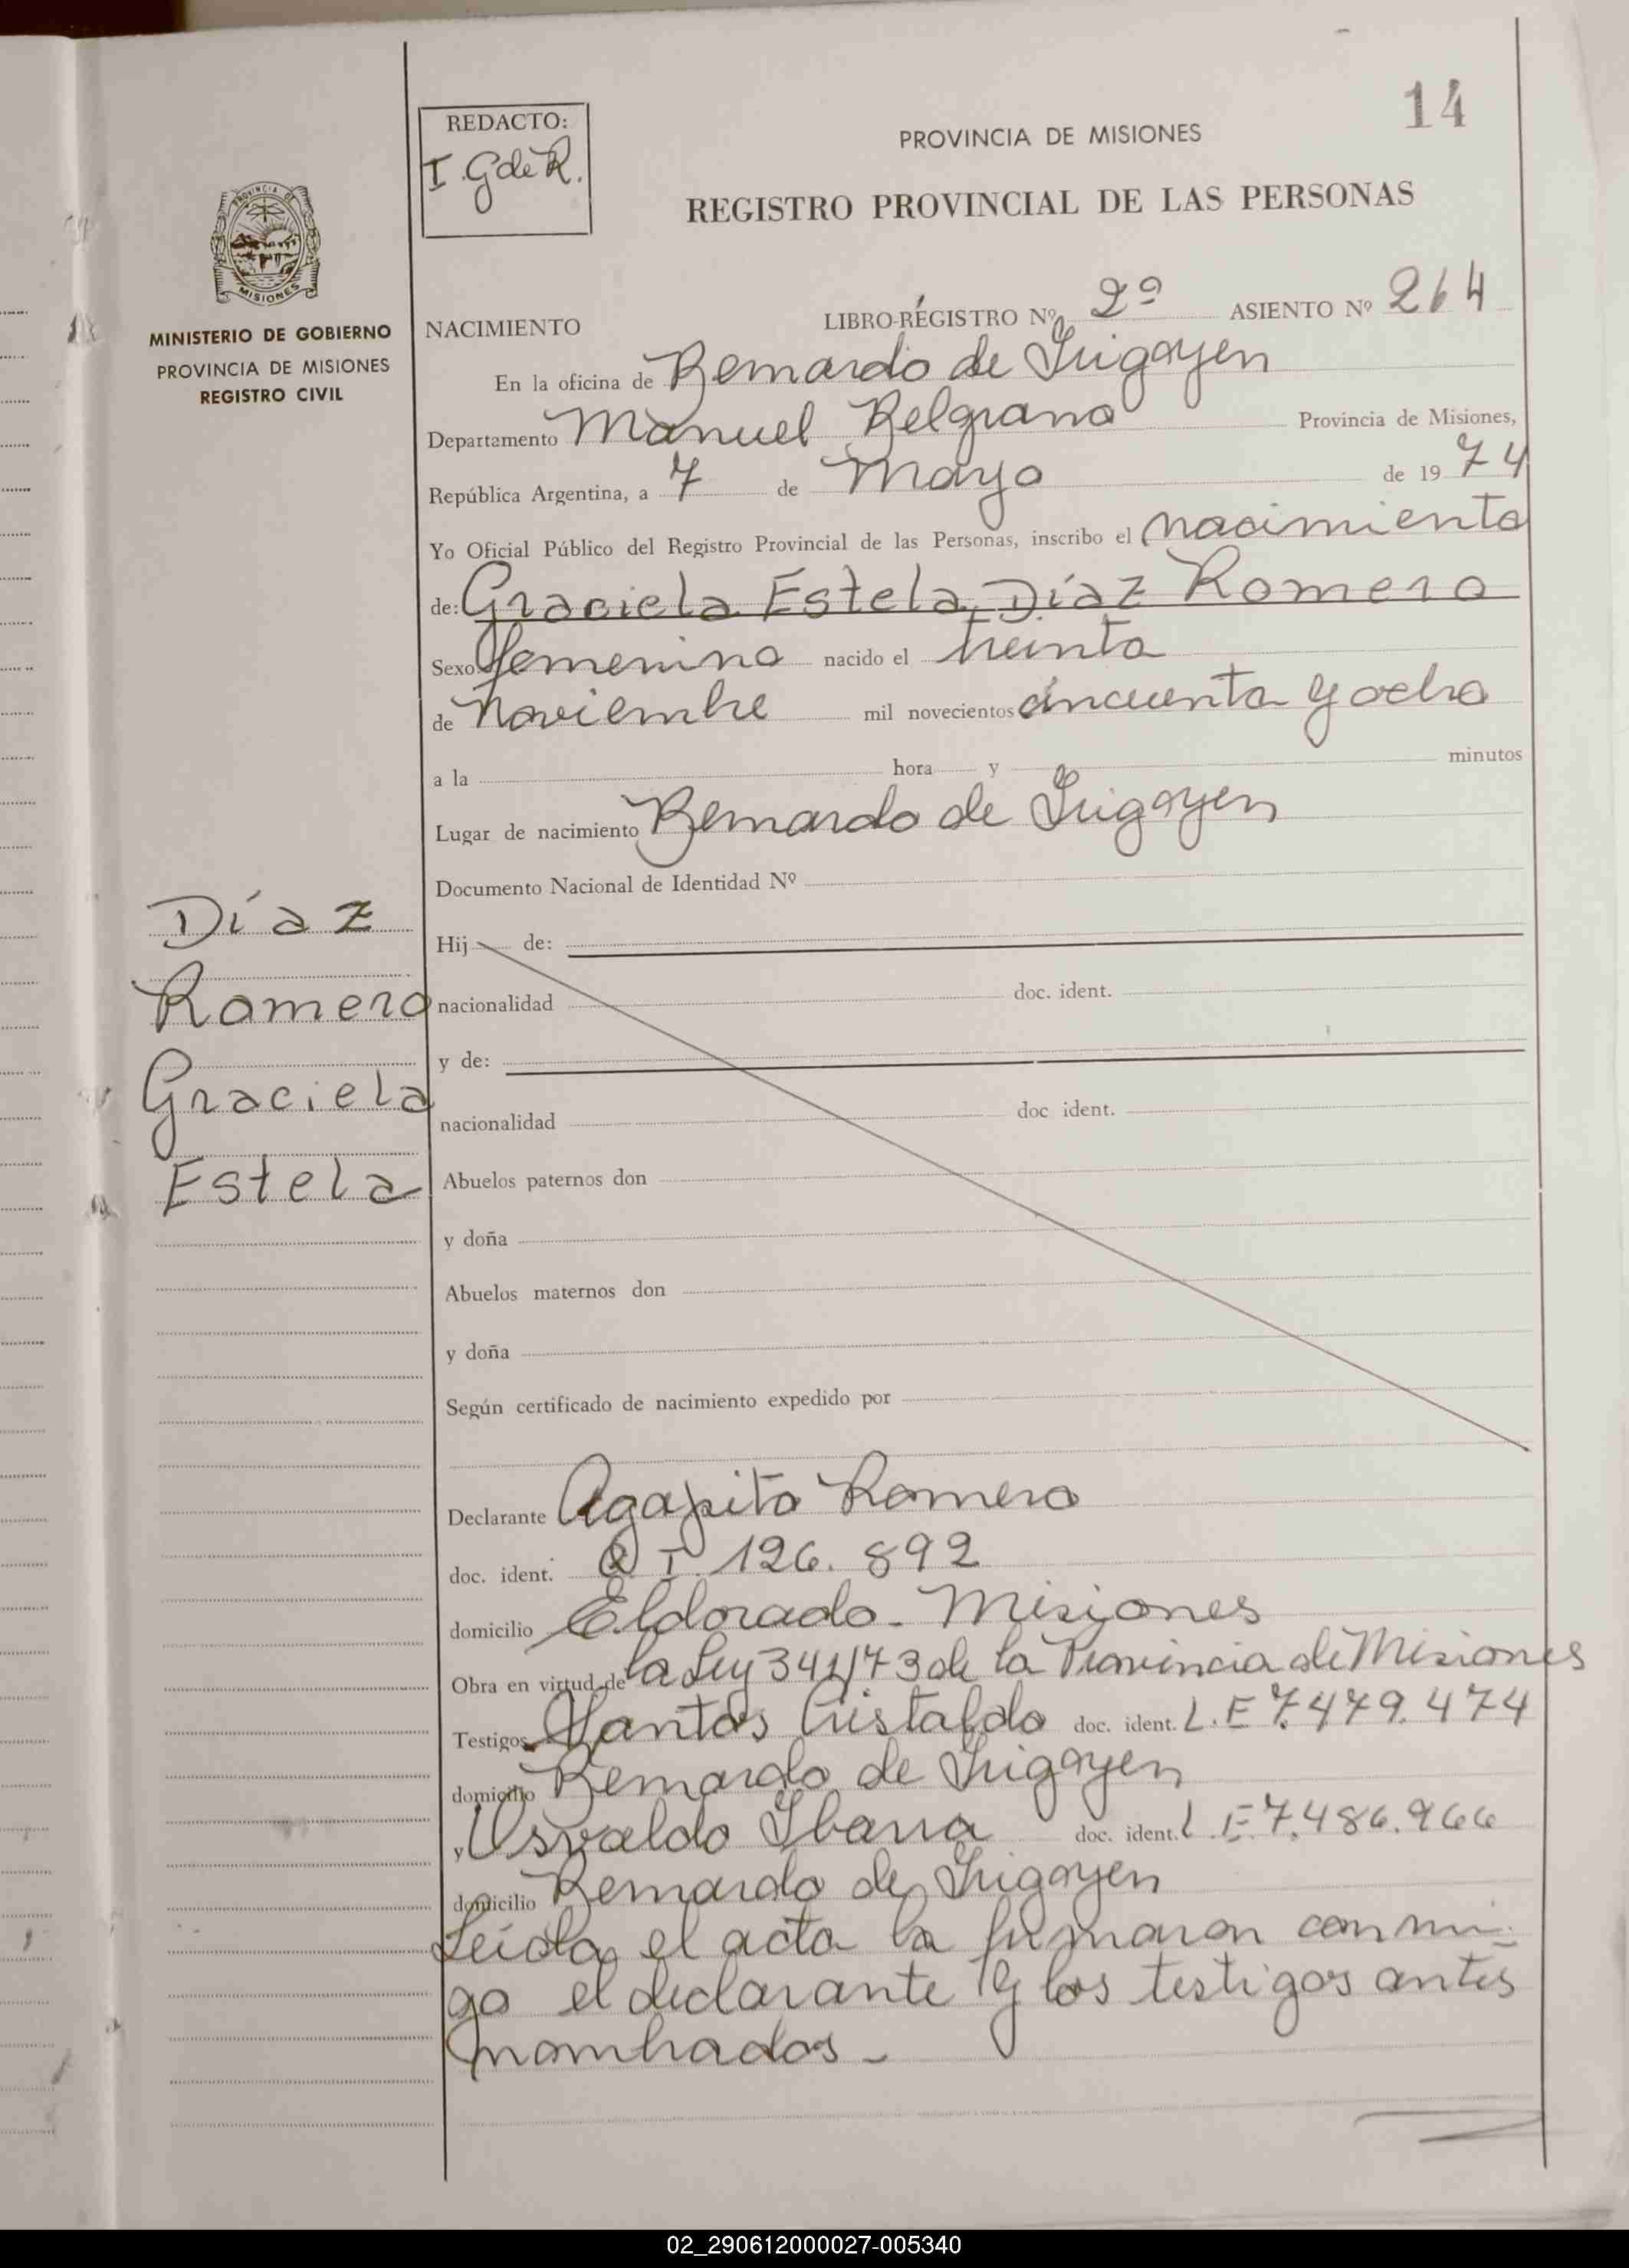 14
REDACTO:
I. G de R.
PROVINCIA DE MISIONES
REGISTRO PROVINCIAL DE LAS PERSONAS
PROVINCIA DE
MISIONES
MINISTERIO DE GOBIERNO
PROVINCIA DE MISIONES
REGISTRO CIVIL
NACIMIENTO LIBRO-REGISTRO Nº 2º ASIENTO Nº 264
En la oficina de Bernardo de Irigoyen
Departamento Manuel Belgrano Provincia de Misiones,
República Argentina, a 7 de Mayo de 1974
Yo Oficial Público del Registro Provincial de las Personas, inscribo el nacimiento
de: Graciela Estela Díaz Romero
Sexo femenino nacido el treinta
de Noviembre mil novecientos cincuenta y ocho
a la hora y minutos
Lugar de nacimiento Bernardo de Irigoyen
Documento Nacional de Identidad Nº
Díaz
Romero
Graciela
Estela
Hij de:
nacionalidad doc. ident.
y de:
nacionalidad doc ident.
Abuelos paternos don
y doña
Abuelos maternos don
y doña
Según certificado de nacimiento expedido por
Declarante Agapito Romero
doc. ident. I. 126.892
domicilio Eldorado - Misiones
Obra en virtud de la Ley 341/73 de la Provincia de Misiones
Testigos Santos Cristaldo doc. ident. L.E 7.479.474
domicilio Bernardo de Irigoyen
y Osvaldo Ibarra doc. ident. L.E.7.486.966
domicilio Bernardo de Irigoyen
Leída el acta la firmaron conmi-
go el declarante y los testigos antes
nombrados -
02_290612000027-005340